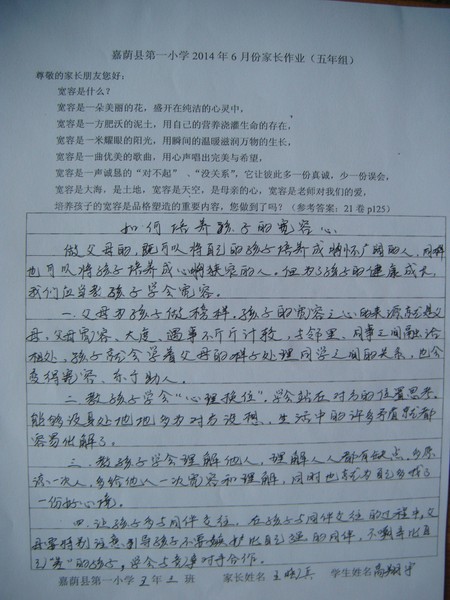 嘉荫县第一小学2014年6月份家长作业（五年组）
尊敬的家长朋友您好：
宽容是什么？
宽容是一朵美丽的花，盛开在纯洁的心灵中，
宽容是一方肥沃的泥土，用自己的营养浇灌生命的存在，
宽容是一米耀眼的阳光，用瞬间的温暖滋润万物的生长，
宽容是一曲优美的歌曲，用心声唱出完美与希望，
宽容是一声诚恳的“对不起”、“没关系”，它让彼此多一份真诚，少一份误会，
宽容是大海，是土地，宽容是天空，是母亲的心，宽容是老师对我们的爱，
培养孩子的宽容是品格塑造的重要内容，您做到了吗？（参考答案：21卷p125）
如何培养孩子的宽容心
做父母的，既可以将自己的孩子培养成胸怀广阔的人，同样
也可以将孩子培养成心胸狭窄的人。但为了孩子的健康成长，
我们应当教孩子学会宽容。
一、父母为孩子做榜样，孩子的宽容之心的来源就是父
母，父母宽容、大度、遇事不斤斤计较，与邻里、同事之间融洽
相处，孩子就会学着父母的样子处理同学之间的关系，也会
变得宽容、乐于助人。
二、教孩子学会“心理换位”，学会站在对方的位置思考，
能够设身处地地多为对方设想，生活中的许多矛盾就都
容易化解了。
三、教孩子学会理解他人，理解人人都有缺点，多原
谅一次人，多给他人一次宽容和理解，同时也就为自己多找了
一份好心境。
四、让孩子多与同伴交往，在孩子与同伴交往的过程中，父
母要特别注意引导孩子不要嫉妒比自己强的同伴，不嘲弄比自
己“差”的孩子，学会与竞争对手合作。
嘉荫县第一小学 五年 三 班 家长姓名 王 学生姓名 高翔宇